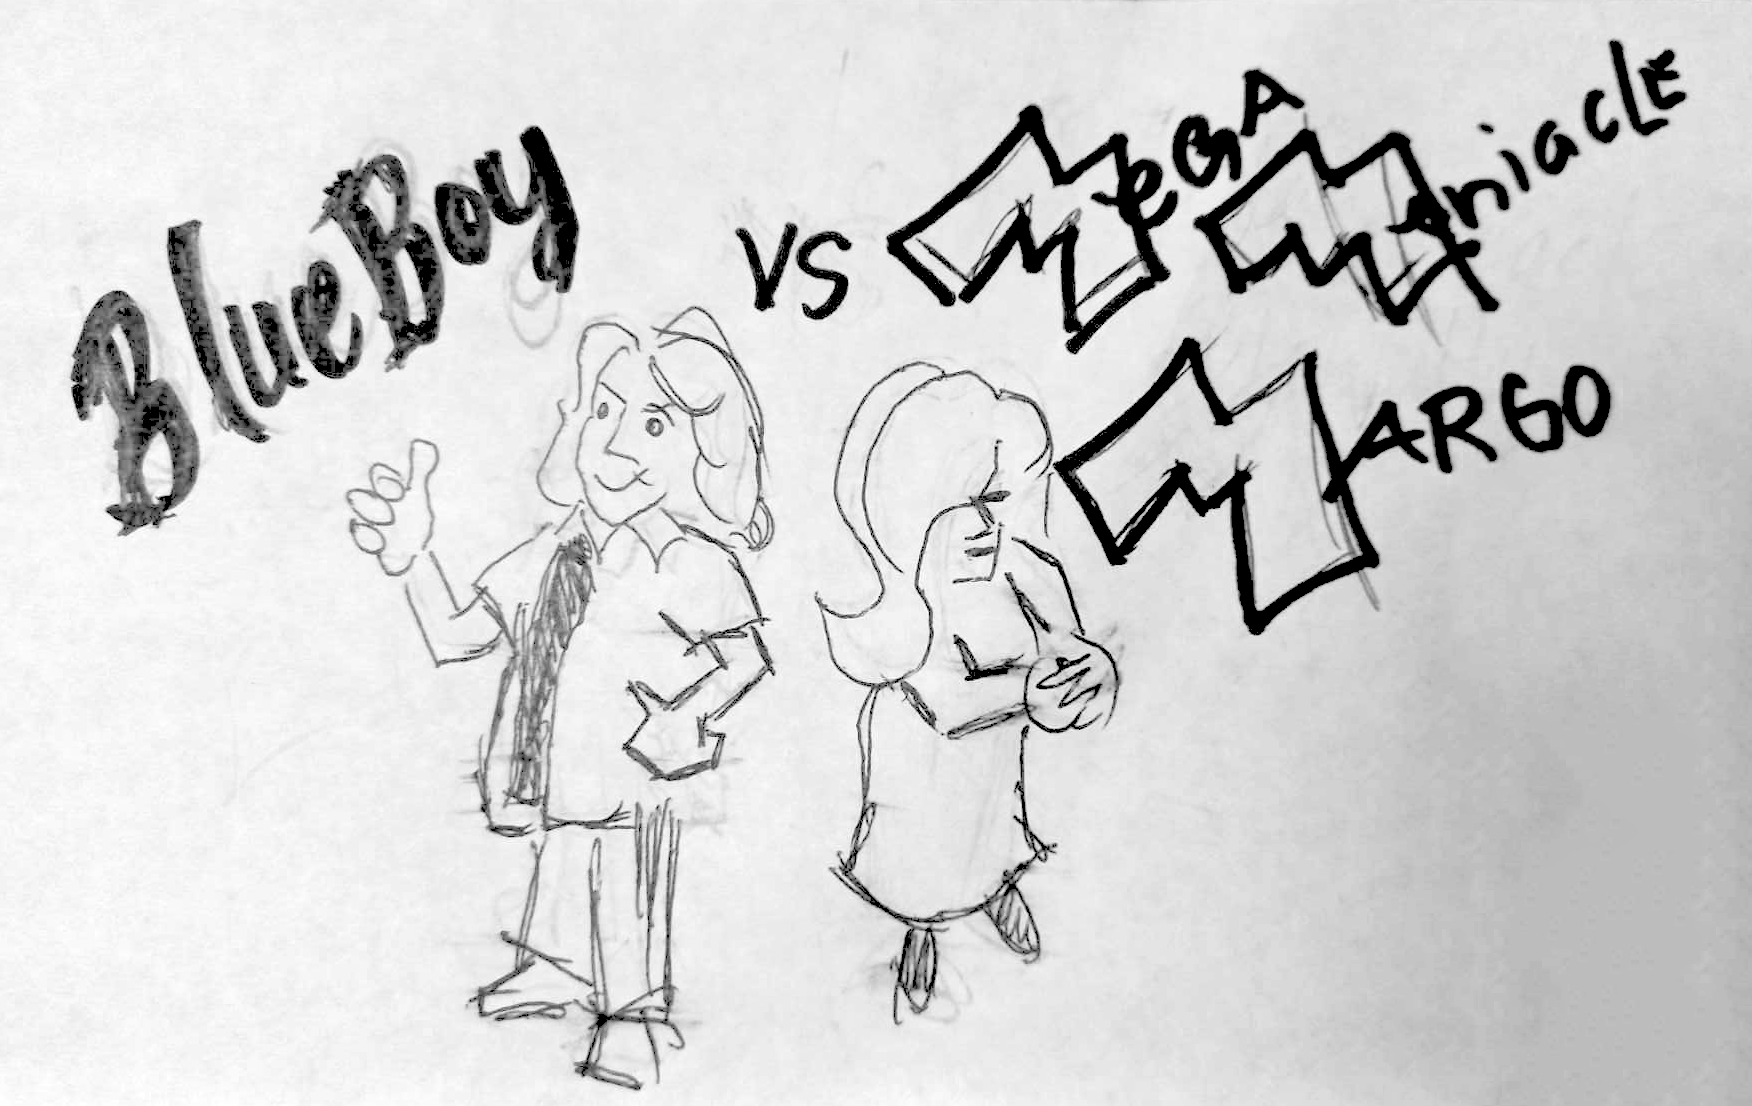 BlueBoy
VS MeGA ManiacLE
MARGO